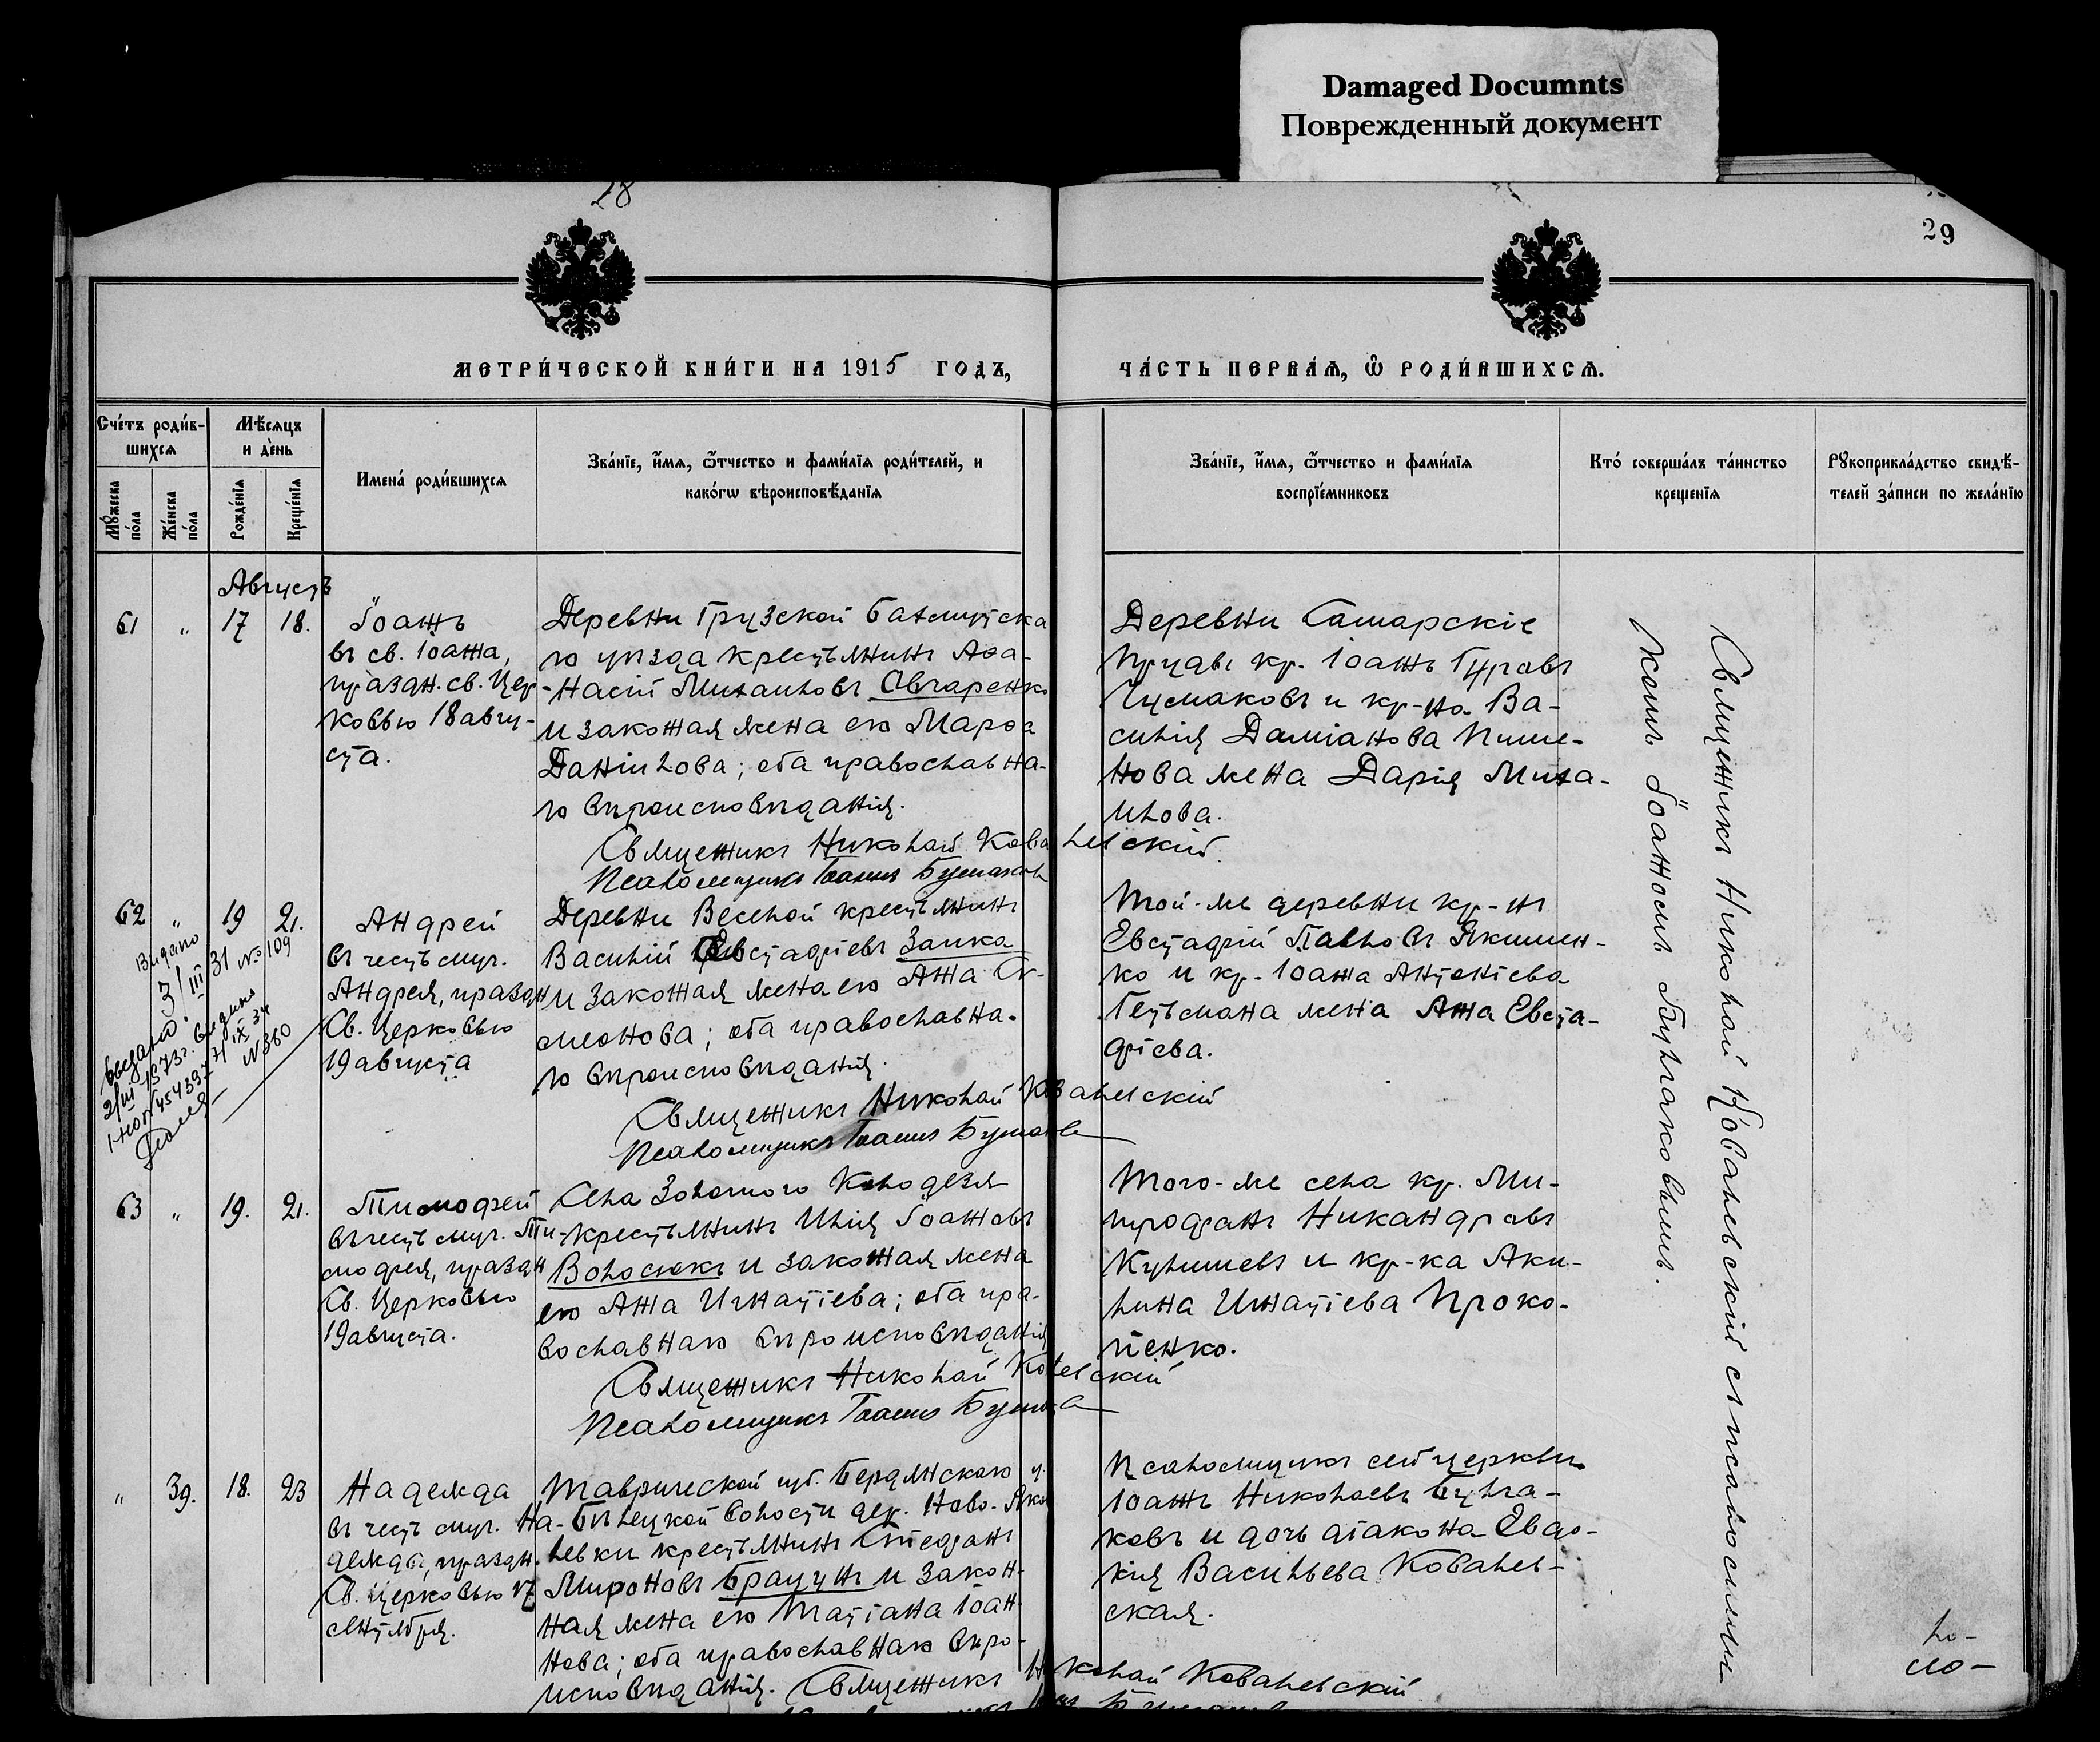 Damaged Documnts
Поврежденный документ
28
29
МЕТРИ́ЧЕСКОЙ КНИ́ГИ НА 1915 ГОДЪ,
ЧА́СТЬ ПЕРВА́Ѧ, Ѡ҆ РОДИ́ВШИХСѦ.
Сче́тъ роди́в-
шихсѧ
Мѣ́сѧцъ
и де́нь
Мꙋ́жеска по́ла
Же́нска по́ла
Рожде́нїѧ
Креще́нїѧ
Имена́ роди́вшихсѧ
Зва́нїе, и҆́мѧ, ѻ҆́тчество и фами́лїѧ роди́телей, и
како́гѡ вѣроисповѣ́данїѧ
Зва́нїе, и҆́мѧ, ѻ҆́тчество и фами́лїѧ
воспрїе́мниковъ
Кто́ соверша́лъ та́инство
креще́нїѧ
Рꙋкоприкла́дство свидѣ́-
телей за́писи по жела́нїю
Августъ
61 " 17 18.
Іоаннъ
въ св. Іоанна,
праздн. св. Цер
ковью 18 авгу-
ста.
Деревни Грузской Бахмутска
го уѣзда крестьянинъ Аѳа-
-насій Михаиловъ Овчаренко
и законная жена его Марѳа
Даніилова; оба православна-
го вѣроисповѣданія.
Священникъ Николай Ковалевскій.
Псаломщикъ Іоаннъ Булгаковъ
Деревни Самарскіе
Пруды кр. Іоаннъ Гуровъ
Чумаковъ и кр-на Ва-
силія Даміанова Пиме-
нова жена Дарія Миха-
илова.
62 " 19 21.
Андрей
въ честь муч.
Андрея, праздн
Св. Церковью
19 августа
Деревни Веселой крестьянинъ
Василій Евстафіевъ Заика
и законная жена его Анна Си-
меонова; оба православна-
го вѣроисповѣданія.
Священникъ Николай Ковалевскій
Псаломщикъ Іоаннъ Булгаковъ
Той-же деревни кр-нъ
Евстафій Павловъ Якимен-
ко и кр. Іоанна Антоніева
Гетьмана жена Анна Евста-
фіева.
Видано
3/III 31 № 109
63 " 19. 21.
Тимофей
въ честь муч. Ти-
мофея, праздн
Св. Церковью
19 августа.
Села Золотого Колодезя
крестьянинъ Илія Іоанновъ
Волосюкъ и законная жена
его Анна Игнатіева; оба пра-
вославнаго вѣроисповѣданія
Священникъ Николай Ковалевскій
Псаломщикъ Іоаннъ Булгаковъ
Того-же села кр. Ми-
трофанъ Никандровъ
Кулишевъ и кр-ка Аки-
лина Игнатіева Проко-
пенко.
" 39. 18. 23
Надежда
въ честь муч. На-
дежды, праздн.
Св. Церковью 17
сентября.
Таврической губ. Бердянскаго у.
Бѣлецкой волости дер. Ново-Яков
левки крестьянинъ Стефанъ
Мироновъ Брацунъ и закон-
ная жена его Татіана Іоан-
нова; оба православнаго вѣро-
исповѣданія. Священникъ Николай Ковалевскій
Псаломщикъ сей церкви
Іоаннъ Николаевъ Булга-
ковъ и дочь діакона Евдо-
кія Васильева Ковалев-
ская.
Священникъ Николай Ковалевскій съ псаломщи-
комъ Іоанномъ Булгаковымъ.
ло-
мо-